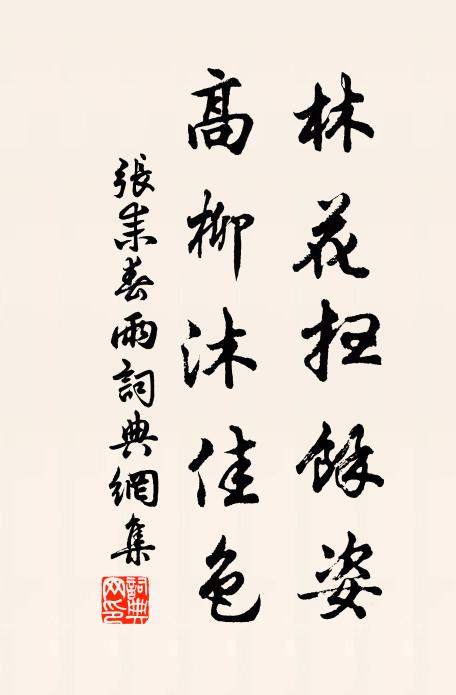 林花扫餘姿
高柳沐佳色
張耒春雨詞典網集
詞典网印